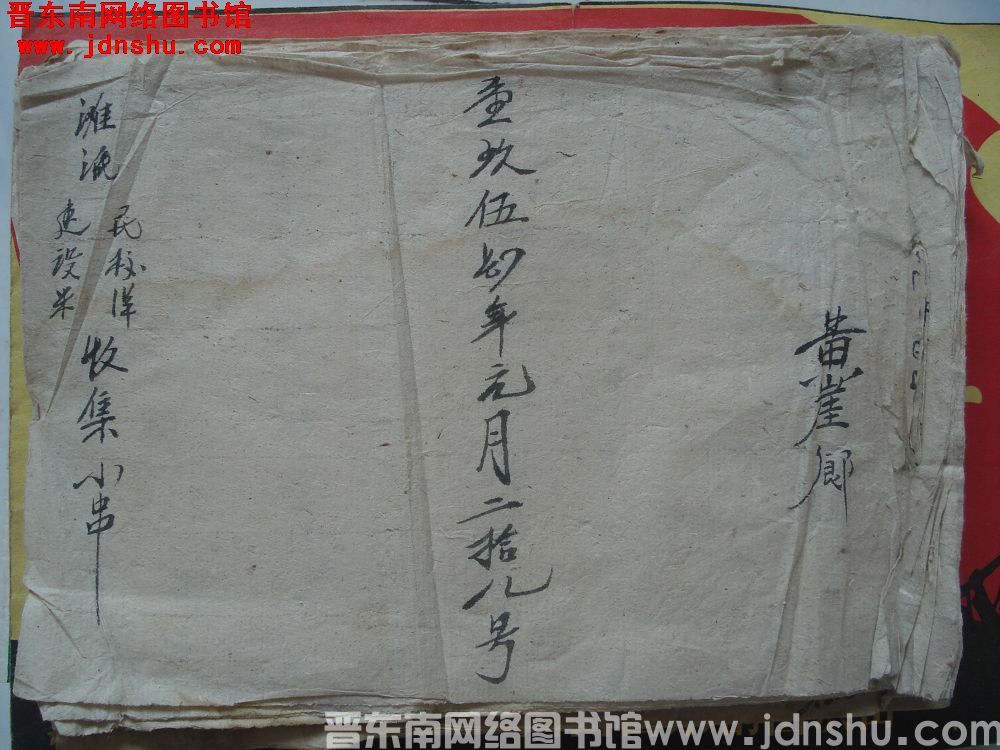 晋东南网络图书馆
www.jdnshu.com
黄崖鄉
壹玖伍肆年元月二拾八号
滩泜
民校洋
建设米
收集小串
晋东南网络图书馆 www.jdnshu.com